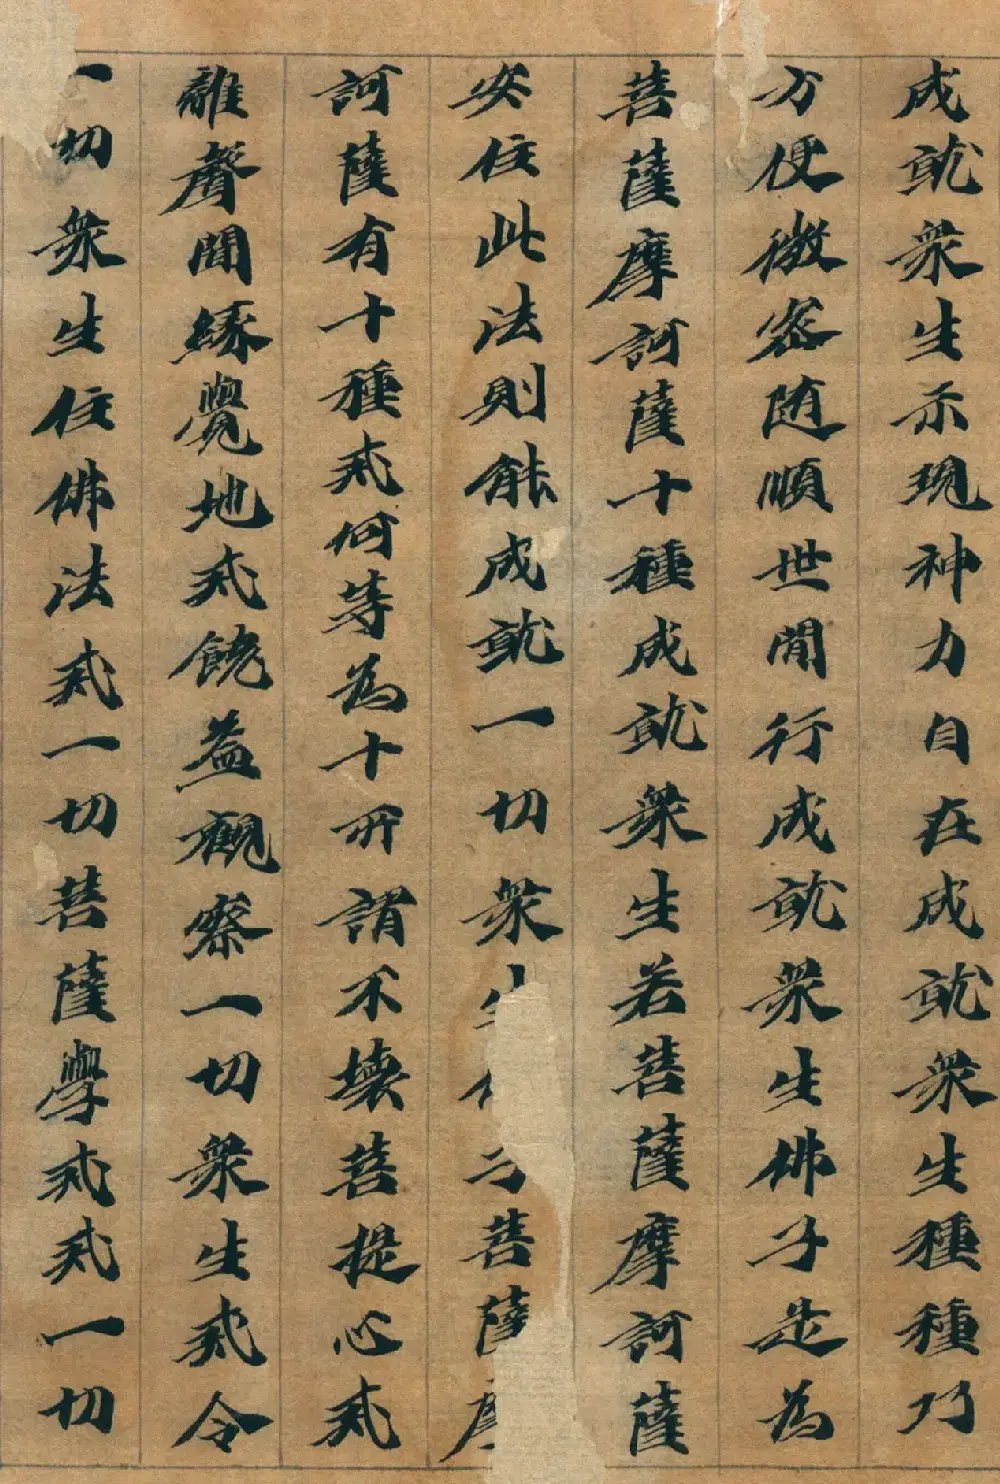 成就衆生示現神力自在成就衆生種種巧
方便微密随順世間行成就衆生佛子是為
菩薩摩訶薩十種成就衆生若菩薩摩訶薩
安住此法則能成就一切衆生佛子菩薩摩
訶薩有十種戒何等為十所謂不壞菩提心戒
離聲聞緣覺地戒饒益觀察一切衆生戒令
一切衆生住佛法戒一切菩薩學戒戒一切